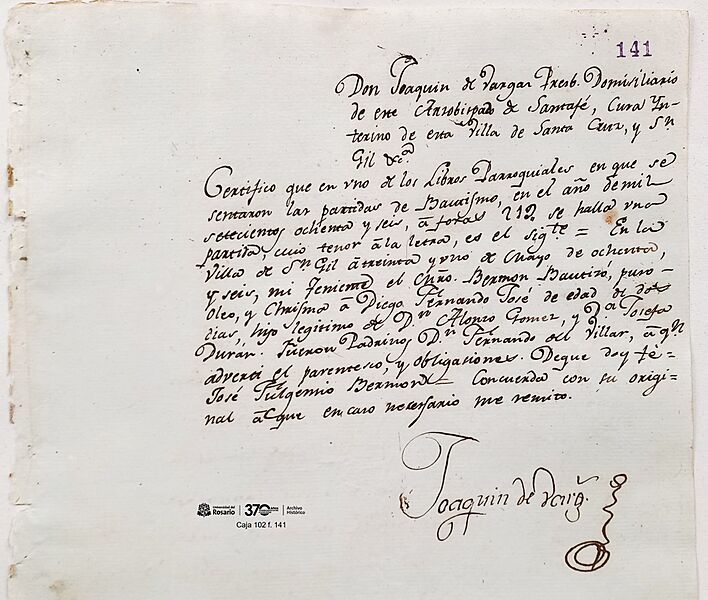 141
Don Joaquin de Vargas Presb. Domisiliario
de este Arzobispado de Santafé, Cura Yn-
terino de esta Villa de Santa Cruz, y Sn
Gil &ca
Certifico que en vno de los Libros Parroquiales en que se
sentaron las partidas de Bautismo, en el año de mil
setecientos ochenta y seis, a foxas 212 se halla vna
partida, cuio tenor â la letra, es el sigte = En la
Villa de Sn Gil â treinta y vno de Mayo de ochenta,
y seis, mi Teniente el Mro. Bermon Bautizo, puso
Oleo, y Chrisma â Diego Fernando José de edad de dos
dias, hijo legitimo de Dn Alonzo Gomez, y Da Josefa
Duran. Fueron Padrinos Dn Fernando del Villar, â qn
advertí el parentesco, y obligaciones. De que doy fé =
José Fulgensio Bermon = Concuerda con su origi-
nal â que en caso necesario me remito.
Joaquin de Varg.s
Universidad del
Rosario
370 AÑOS
Archivo
Histórico
Caja 102 f. 141